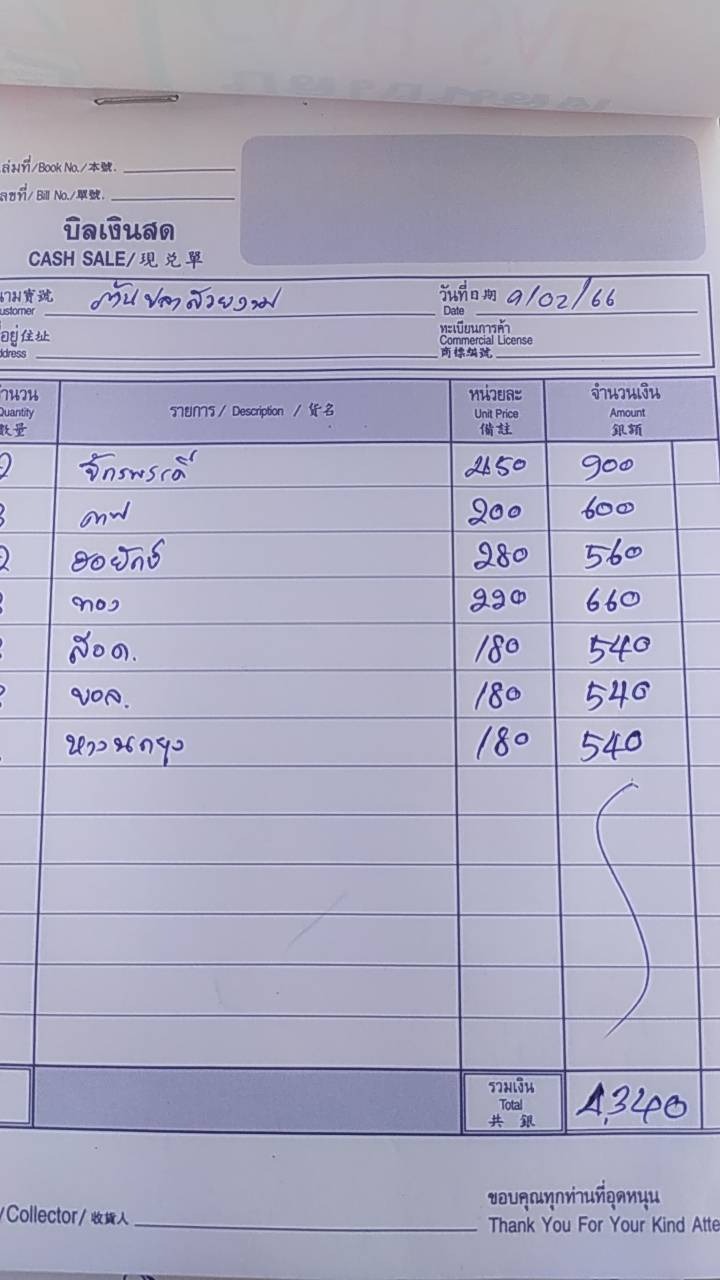 ล่มที่/Book No./本號.
ลขที่/ Bill No./單號.
บิลเงินสด
CASH SALE/現兌單
นาม寶號 ตันปลาสวยงาม วันที่日期 9/02/66
ustomer Date
ี่อยู่住址 ทะเบียนการค้า
ddress Commercial License
商標編號
ำนวน รายการ / Description / 貨名 หน่วยละ จำนวนเงิน
Quantity Unit Price Amount
數量 備註 銀額
2 จักรพรรดิ์ 450 900
3 คาฟ 200 600
2 ฮอยักษ์ 280 560
ทอง 220 660
สอด. 180 540
บอล. 180 540
หางนกยูง 180 540
รวมเงิน
Total 4,340
共 銀
ขอบคุณทุกท่านที่อุดหนุน
/Collector/ 收貨人 Thank You For Your Kind Atte